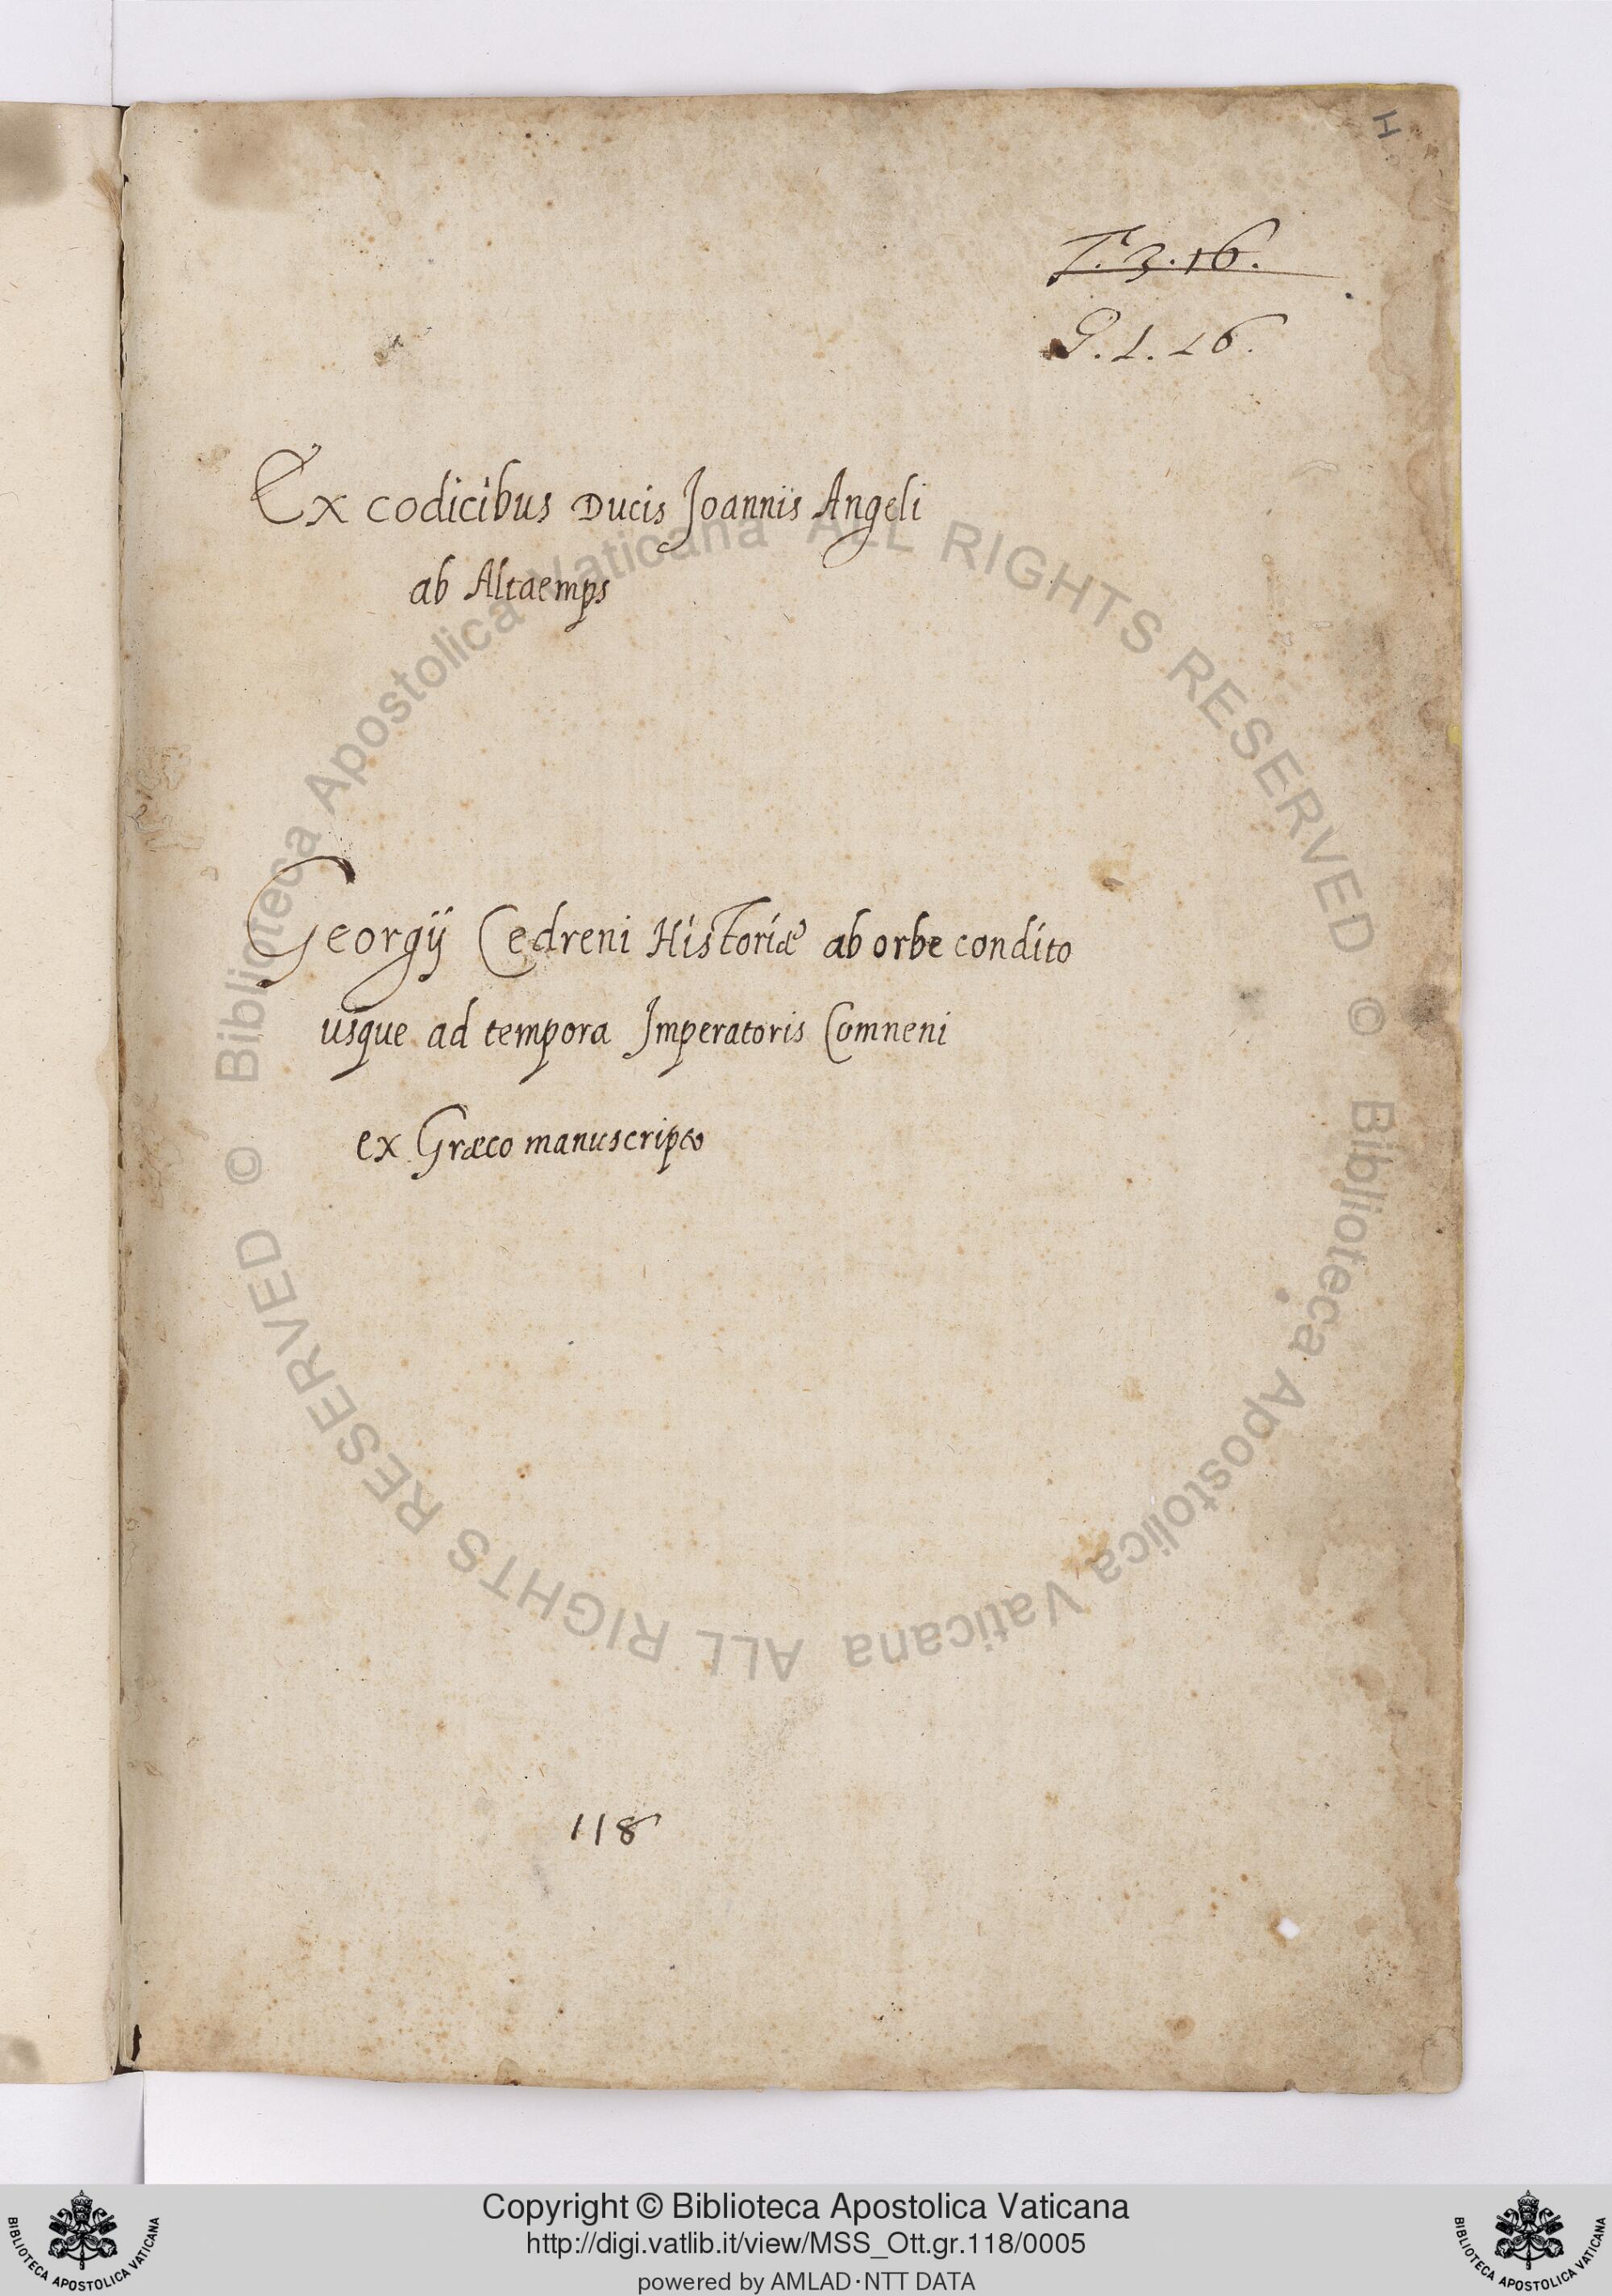 I
T.3.16.
G.1.16.
Ex codicibus Ducis Joannis Angeli
ab Altaemps
Georgij Cedreni Historiæ ab orbe condito
usque ad tempora Imperatoris Comneni
ex Græco manuscripto
118
© Biblioteca Apostolica Vaticana ALL RIGHTS RESERVED
© Biblioteca Apostolica Vaticana ALL RIGHTS RESERVED
BIBLIOTECA APOSTOLICA VATICANA
Copyright © Biblioteca Apostolica Vaticana
http://digi.vatlib.it/view/MSS_Ott.gr.118/0005
powered by AMLAD·NTT DATA
BIBLIOTECA APOSTOLICA VATICANA